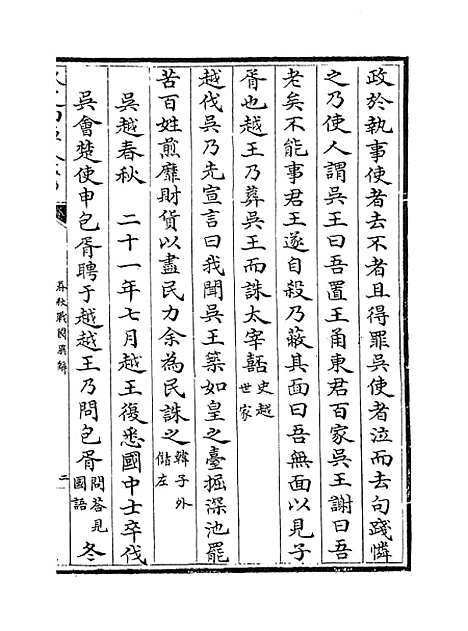 政於執事使者去不者且得罪吳使者泣而去句踐憐
之乃使人謂吳王曰吾置王甬東君百家吳王謝曰吾
老矣不能事君王遂自殺乃蔽其面曰吾無面以見子
胥也越王乃葬吳王而誅太宰嚭史越世家
越伐吳乃先宣言曰我聞吳王築如皇之臺掘深池罷
苦百姓煎靡財貨以盡民力余為民誅之韓子外儲左
吳越春秋　二十一年七月越王復悉國中士卒伐
吳會楚使申包胥聘于越越王乃問包胥問荅見國語冬
春秋戰國異辭
二